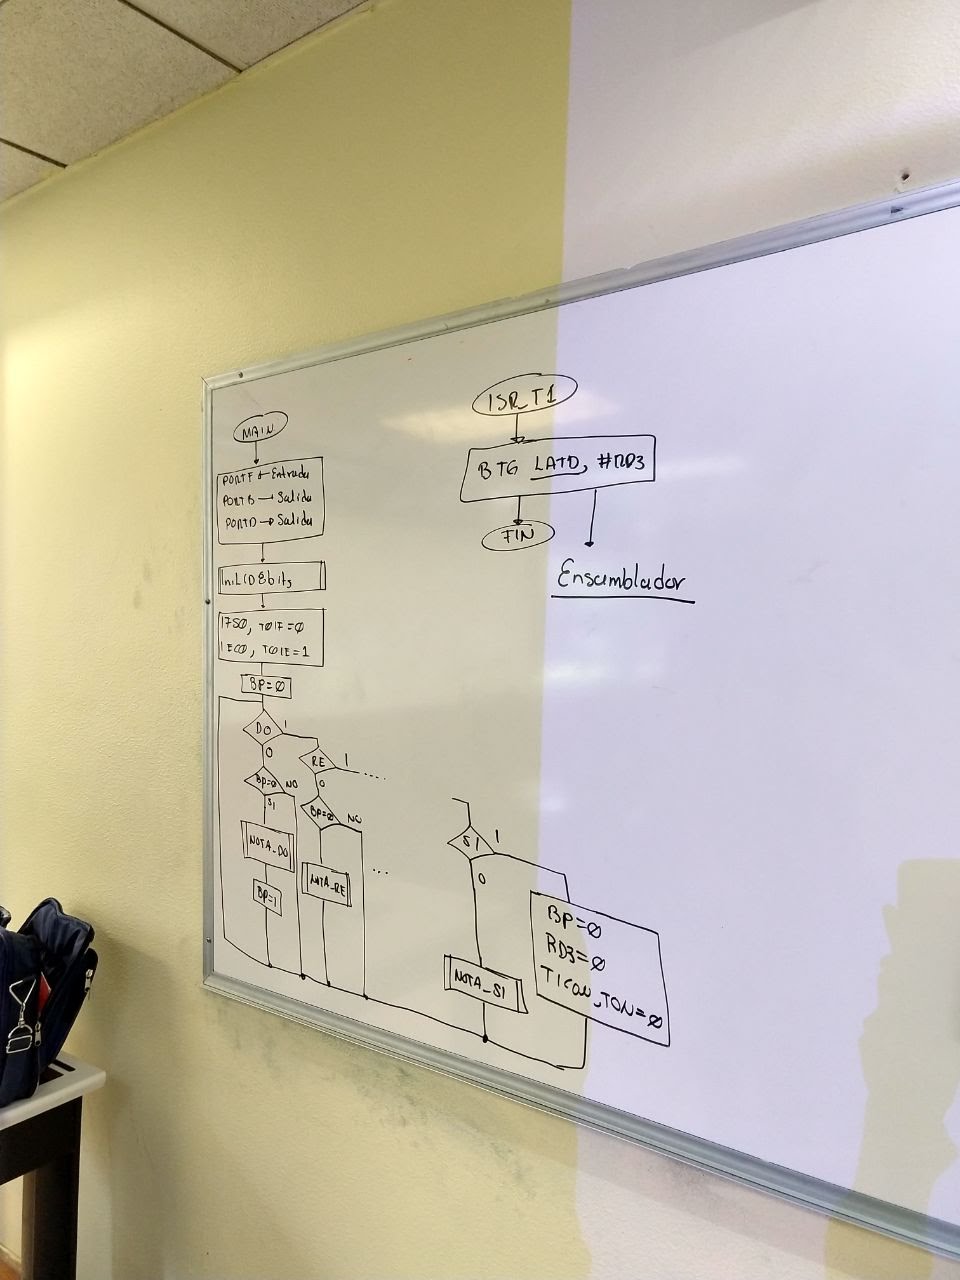 MAIN
PORTF ← Entrada
PORTB → Salida
PORTD → Salida
IniLCD8bits
IFS0, T01F=0
IEC0, T01E=1
BP=0
DO
1
0
RE
1
0
BP=0
NO
SI
BP=0
NO
NOTA_DO
NOTA_RE
BP=1
...
...
SI
1
0
NOTA_SI
BP=0
RD3=0
T1CON, TON=0
ISR_T1
BTG LATD, #RD3
FIN
Ensamblador